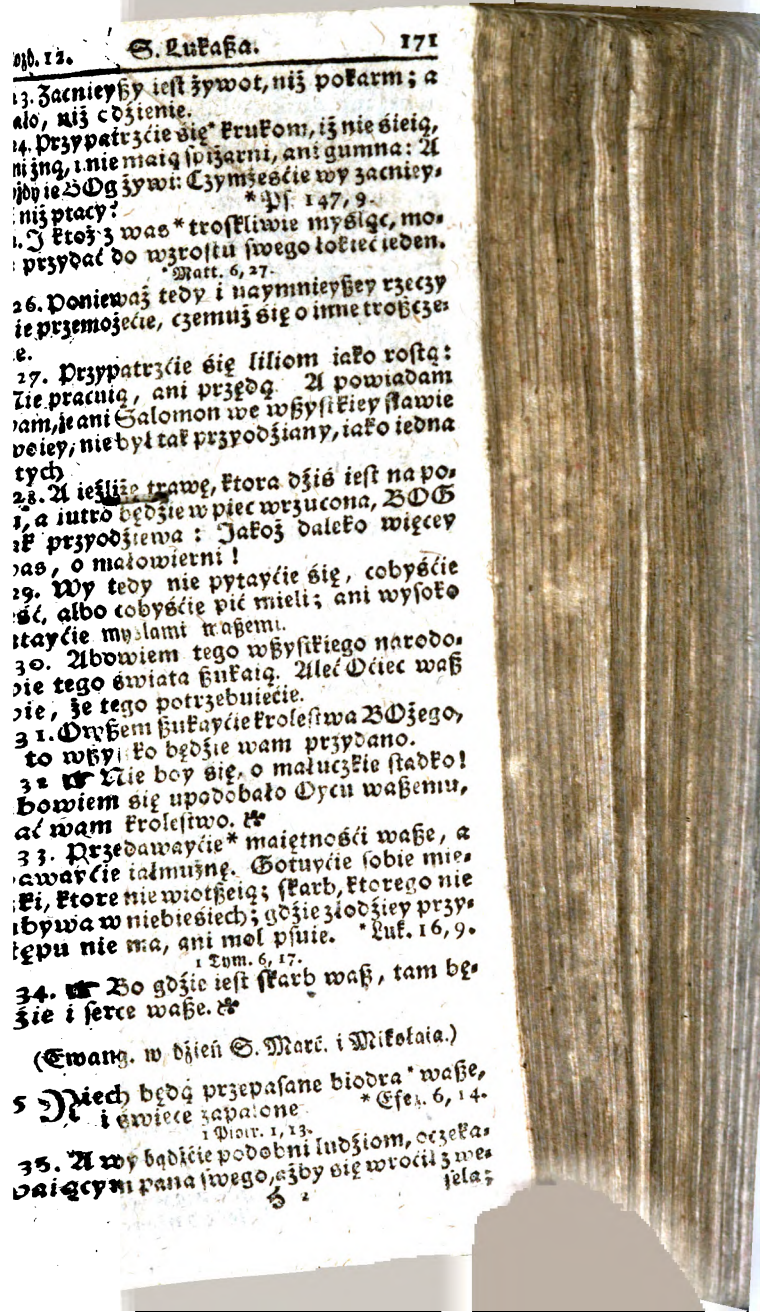 ozd. 12. S. Lukaßa. 171
23. Zacnieyßy iest żywot, niż pokarm; a
ało, niż odźienie.
24. Przypatrzćie się* krukom, iż nie sieią,
ni żną, i nie maią spiżarni, ani gumna: A
ie BOg żywi: Czymżeśćie wy zacniey-
niż ptacy? * Ps. 147, 9.
. I ktoż z was * troskliwie myśląc, mo-
przydać do wzrostu swego łokieć ieden.
* Matt. 6, 27.
26. Ponieważ tedy i naymnieyßey rzeczy
ie przemożećie, czemuż się o inne troßcze-
ie.
27. Przypatrzćie się liliom iako rostą:
Nie pracuią, ani przędą A powiadam
wam, że ani Salomon we wßystkiey sławie
woiey, nie był tak przyodźiany, iako iedna
tych
28. A ieźliże trawę, ktora dźiś iest na po-
, a iutro będźie w piec wrzucona, BOG
ak przyodźiewa: Jakoż daleko więcey
was, o małowierni!
29. Wy tedy nie pytayćie się, cobyśćie
eść, albo cobyśćie pić mieli; ani wysoko
atayćie myslami waßemi.
30. Abowiem tego wßystkiego narodo-
wie tego świata ßukaią. Aleć Oćiec waß
wie, że tego potrzebuiećie.
31. Owßem ßukayćie krolestwa BOżego,
to wßystko będźie wam przydano.
32 ☞ Nie boy się, o maluczkie stadko!
bowiem się upodobało Oycu waßemu,
ać wam krolestwo.
33. Przedawayćie* maiętnośći waße, a
awayćie iałmużnę. Gotuyćie sobie mie-
ki, ktore nie wiotßeią; skarb, ktorego nie
ubywa w niebiesiech; gdźie złodźiey przy-
tępu nie ma, ani mol psuie. * Luk. 16, 9.
1 Tym. 6, 17.
34. ☞ Bo gdźie iest skarb waß, tam bę-
źie i serce waße.
(Ewang. w dźień S. Marć. i Mikołaia.)
5 Niech będą przepasane biodra* waße,
i świece zapalone * Efez. 6, 14.
1 Piotr. 1, 13.
35. A wy bądźćie podobni ludźiom, oczeka-
waiącym pana swego, ażby się wroćił z we-
H 2 sela;